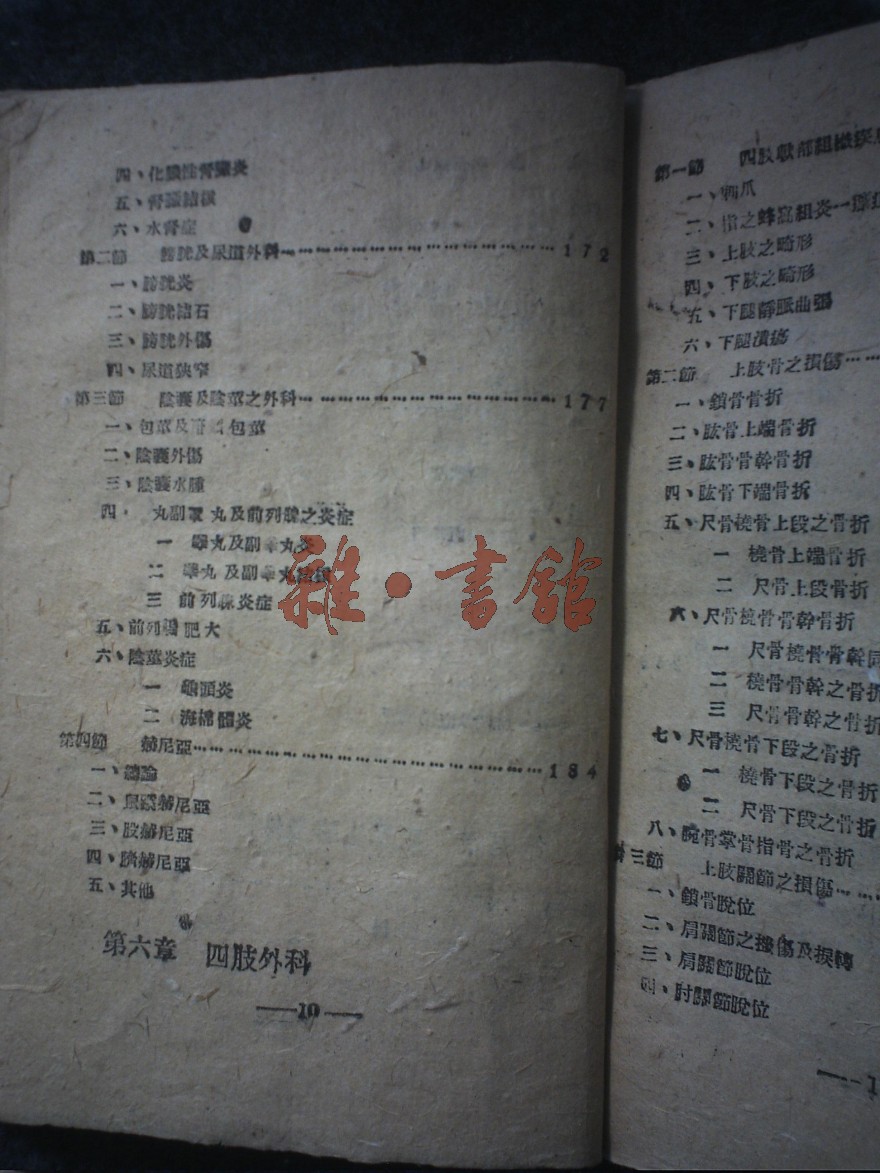 四、化膿性腎臟炎
五、腎臟結核
六、水腎症
第二節 膀胱及尿道外科……………………………172
一、膀胱炎
二、膀胱結石
三、膀胱外傷
四、尿道狹窄
第三節 陰囊及陰莖之外科……………………………177
一、包莖及 包莖
二、陰囊外傷
三、陰囊水腫
四、 丸副睾丸及前列腺之炎症
一 睾丸及副睾丸炎
二 睾丸及副睾丸結核
三 前列腺炎症
五、前列腺肥大
六、陰莖炎症
一 龜頭炎
二 海棉體炎
第四節 赫尼亞……………………………184
一、總論
二、鼠蹊赫尼亞
三、股赫尼亞
四、臍赫尼亞
五、其他
第六章 四肢外科
—10—
第一節 四肢軟部組織疾
一、嵌爪
二、指之蜂窩組炎—瘭疽
三、上肢之畸形
四、下肢之畸形
五、下腿靜脈曲張
六、下腿潰瘍
第二節 上肢骨之損傷……
一、鎖骨骨折
二、肱骨上端骨折
三、肱骨骨幹骨折
四、肱骨下端骨折
五、尺骨橈骨上段之骨折
一 橈骨上端骨折
二 尺骨上段骨折
六、尺骨橈骨骨幹骨折
一 尺骨橈骨骨幹同
二 橈骨骨幹之骨折
三 尺骨骨幹之骨折
七、尺骨橈骨下段之骨折
一 橈骨下段骨折
二 尺骨下段之骨折
八、腕骨掌骨指骨之骨折
第三節 上肢關節之損傷……
一、鎖骨脫位
二、肩關節之挫傷及捩轉
三、肩關節脫位
四、肘關節脫位
雜·書館